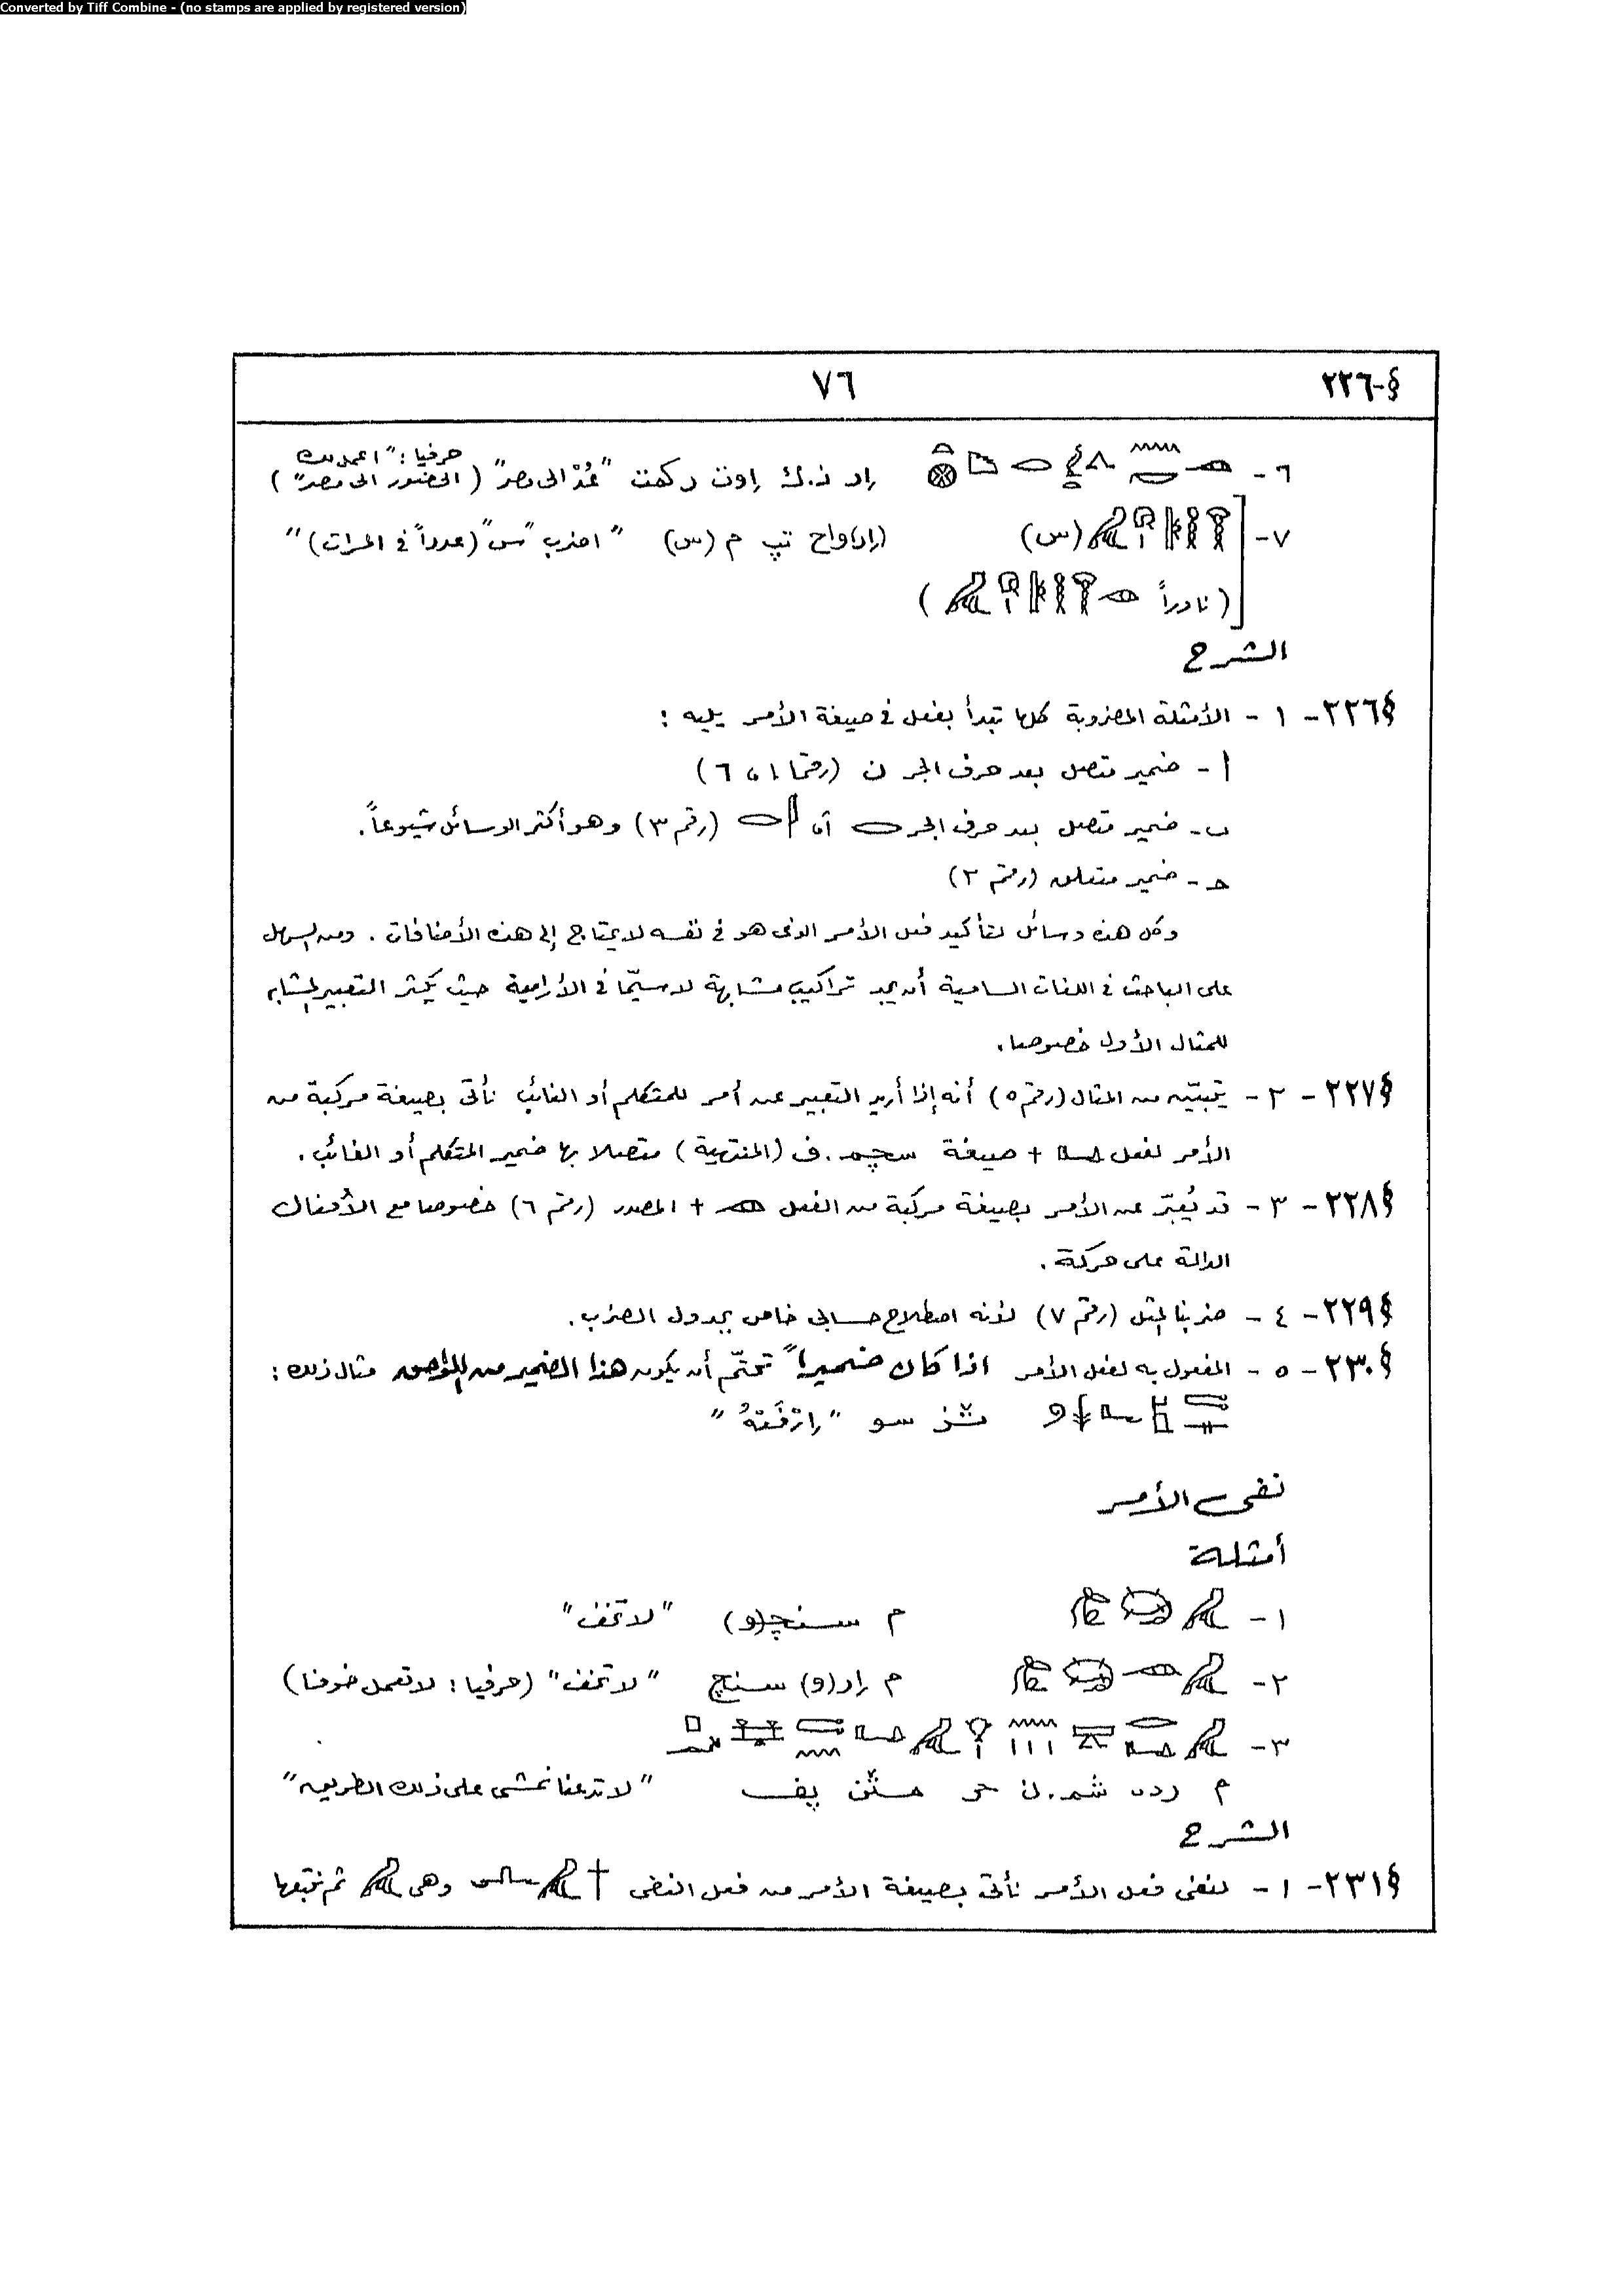 Converted by Tiff Combine - (no stamps are applied by registered version)
§-٢٢٦ ٧٦
٦ - إر ن.ك إوت ر كمت "عُدْ الى مصر" (حرفيا: "اعمل لك الحضور الى مصر")
٧ - (س) (إر) واح تپ م (س) "اضرب "س" (عدداً في المرات)"
(نادراً )
الشرح
§٢٢٦ - ١ - الأمثلة المضروبة كلها تبدأ بفعل في صيغة الأمر يليه :
أ - ضمير متصل بعد حرف الجر ن (رقما ١ ، ٦)
ب - ضمير متصل بعد حرف الجر (رقم ٣) وهو أكثر الوسائل شيوعاً .
حـ - ضمير متعلق (رقم ٢)
وكل هذه وسائل لتأكيد فعل الأمر الذى هو فى نفسه لا يحتاج إلى هذه الأضافات . ومن السهل
على الباحث فى اللغات السامية أن يجد تراكيب مشابهة لا سيّما فى الأرامية حيث يكثر التعبير المشابه
للمثال الأول خصوصا .
§٢٢٧ - ٢ - يتبيّن من المثال (رقم ٥) أنه إذا أريد التعبير عن أمر للمتكلم أو الغائب نأتى بصيغة مركبة من
الأمر لفعل + صيغة سچم.ف (المنتهية) متصلا بها ضمير المتكلم أو الغائب .
§٢٢٨ - ٣ - قد يُعبّر عن الأمر بصيغة مركبة من الفعل + المصدر (رقم ٦) خصوصا مع الأفعال
الدالة على حركة .
§٢٢٩ - ٤ - ضربنا المثل (رقم ٧) لأنه اصطلاح حسابى خاص بجدول الضرب .
§٢٣٠ - ٥ - المفعول به لفعل الأمر اذا كان ضميراً تحتّم أن يكون هذا الضمير من مثال ذلك :
سو "إرْفَعْهُ"
نفى الأمر
أمثلة
١ - م سنچ(و) "لا تخف"
٢ - م إر(و) سنچ "لا تخف" (حرفيا : لا تعمل خوفا)
٣ -
م ردى شم.ن حر پف "لا تدعنا نمشى على ذلك الطريق"
الشرح
§٢٣١ - ١ - لنفى فعل الأمر نأتى بصيغة الأمر من فعل النفى وهى ثم نتبعها